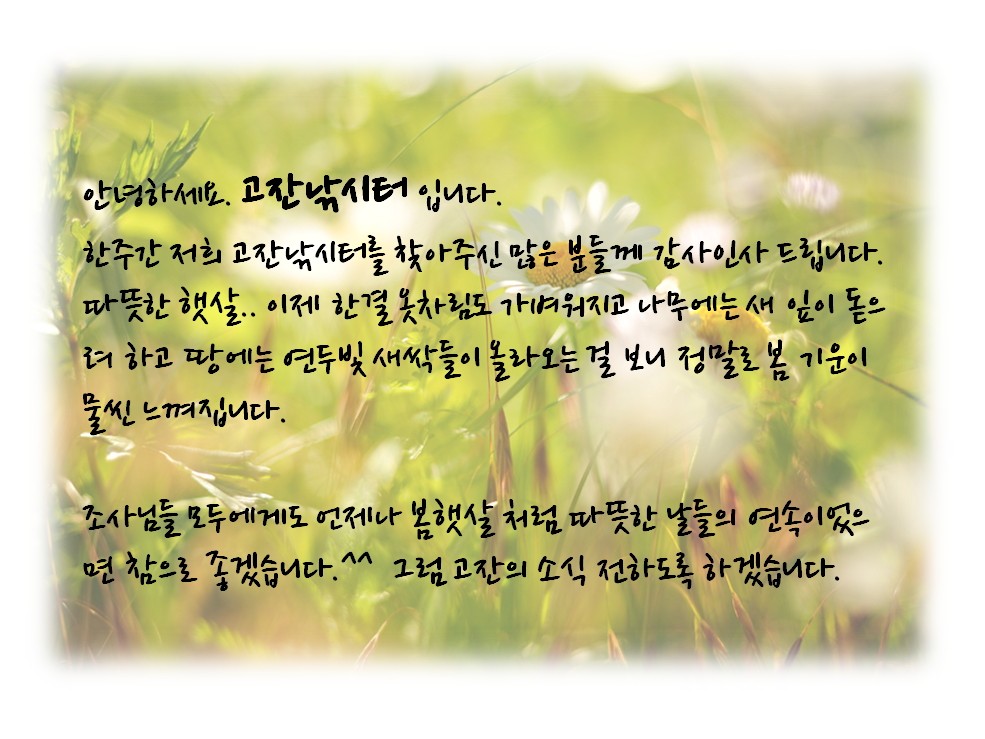 안녕하세요. 고잔낚시터 입니다.
한주간 저희 고잔낚시터를 찾아주신 많은 분들께 감사인사 드립니다.
따뜻한 햇살.. 이제 한결 옷차림도 가벼워지고 나무에는 새 잎이 돋으
려 하고 땅에는 연두빛 새싹들이 올라오는 걸 보니 정말로 봄 기운이
물씬 느껴집니다.
조사님들 모두에게도 언제나 봄햇살 처럼 따뜻한 날들의 연속이었으
면 참으로 좋겠습니다.^^ 그럼 고잔의 소식 전하도록 하겠습니다.